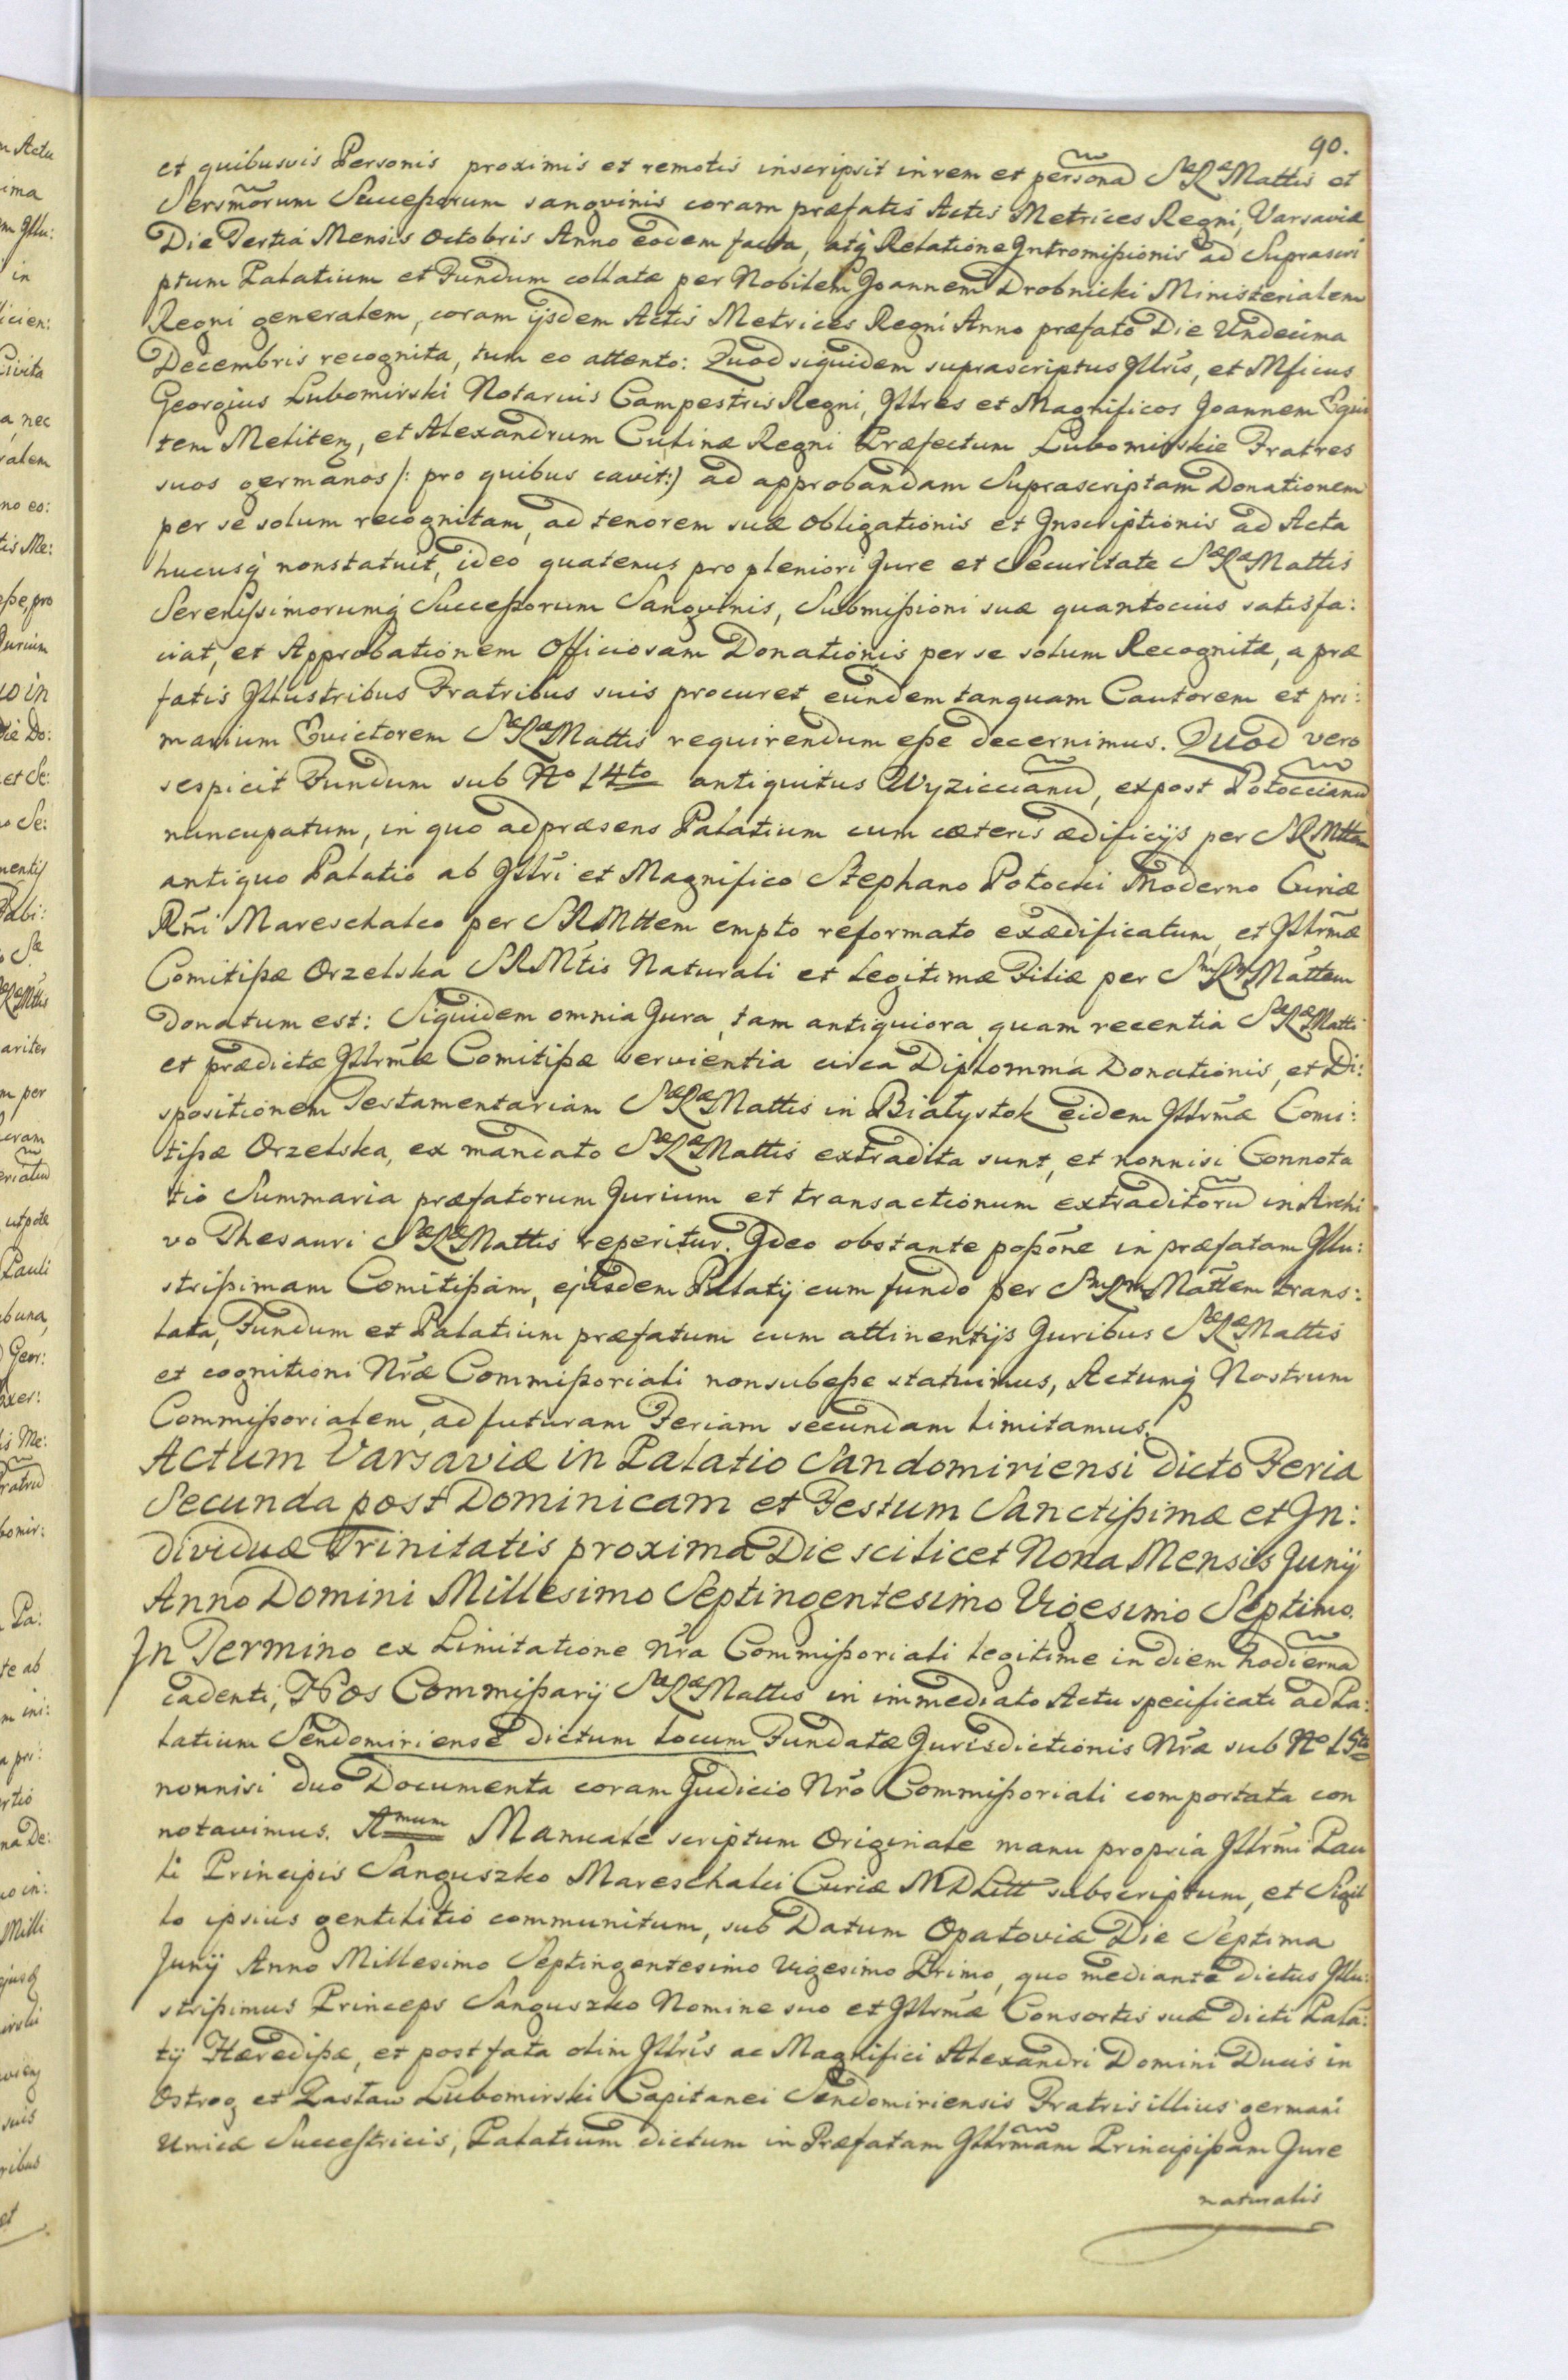 90.
et quibusvis Personis proximis et remotis inscripsit in rem et persona͠ SæRæMattis et
Sersmo͠rum Successorum sangvinis coram præfatis Actis Metrices Regni, Varsaviæ
Die Tertia Mensis Octobris Anno eodem facta, atq́ Relatione Intromissionis ad Suprascri
ptum Palatium et Fundum collatæ per Nobilem Joannem Drobnicki Ministerialem
Regni generalem, coram ijsdem Actis Metrices Regni Anno præfato Die Undecima
Decembris recognita, tum eo attento: Quod siquidem suprascriptus Illr̃is, et Mficus
Georgius Lubomirski Notarius Campestris Regni, Illres et Magnificos Joannem Equi
tem Meliten, et Alexandrum Culinæ Regni Præfectum Lubomirskie Fratres
suos germanos /: pro quibus cavit:) ad approbandam Suprascriptam Donationem
per se solum recognitam, ad tenorem suæ obligationis et Inscriptionis ad Acta
hucusq́ nonstatuit, ideo quatenus pro pleniori Jure et Securitate SæRæMattis
Serenissimorumq́ Successorum Sangvinis, Submissioni suæ quantocius satisfa:
ciat, et Approbationem Officiosam Donationis per se solum Recognitæ, a præ
fatis Illustribus Fratribus suis procuret, eundem tanquam Cautorem et pri:
marium Evictorem SæRæMattis requirendum esse decernimus. Quod vero
respicit Fundum sub No 14to antiquitus Wyziccianu͠, expost Potoccianu͠
nuncupatum, in quo ad præsens Palatium cum cæteris ædificijs per SRMttem
antiquo Palatio ab Illr̃i et Magnifico Stephano Potocki Moderno Curiæ
Rñi Mareschalco per SRMttem empto reformato exædificatum, et Illrm̃æ
Comitissæ Orzelska SRMtis Naturali et Legitimæ Filiæ per SmRmMattem
donatum est: Siquidem omnia Jura, tam antiquiora quam recentia SæRæMattis
et prædictæ Illrm̃æ Comitissæ servientia circa Diplomma Donationis, et Di:
spositionem Testamentariam SæRæMattis in Białystok eidem Illrm̃æ Comi:
tissæ Orzelska, ex mandato SæRæMattis extradita sunt, et nonnisi Connota
tio Summaria præfatorum Jurium et transactionum extraditoru͠ in Archi
vo Thesauri SæRæMattis reperitur. Ideo obstante possõne in præfatam Illu:
strissimam Comitissam, ejusdem Palatij cum fundo per SmRmMattem trans:
lata, Fundum et Palatium præfatum cum attinentijs Juribus SæRæMattis
et cognitioni Nr̃æ Commissoriali nonsubesse statuimus, Actumq́ Nostrum
Commissorialem, ad futuram Feriam secundam limitamus.
Actum Varsaviæ in Palatio Sandomiriensi dicto Feria
Secunda post Dominicam et Festum Sanctissimæ et In:
dividuæ Trinitatis proxima Die scilicet Nona Mensis Junij
Anno Domini Millesimo Septingentesimo Vigesimo Septimo.
In Termino ex Limitatione nr̃a Commissoriali legitime in diem hodierna͠
cadenti, Nos Commissarij SæRæMattis in immediato Actu specificati ad Pa:
latium Sendomiriense dictum locum Fundatæ Jurisdictionis Nr̃æ sub No 15to
nonnisi duo Documenta coram Judicio Nr̃o Commissoriali comportata con
notavimus. Amum Manuale scriptum Originale manu propria Illrm̃i Pau
li Principis Sanguszko Mareschalci Curiæ MDLitt subscriptum, et Sigil
lo ipsius gentilitio communitum, sub Datum Opatoviæ Die Septima
Junij Anno Millesimo Septingentesimo Vigesimo Primo, quo mediante dictus Illu:
strissimus Princeps Sanguszko Nomine suo et Illrm̃æ Consortis suæ dicti Pala:
tij Hæredissæ, et post fata olim Illr̃is ac Magnifici Alexandri Domini Ducis in
Ostrog et Zasław Lubomirski Capitanei Sendomiriensis Fratris illius germani
Unicæ Successtricis, Palatium dictum in Præfatam Illrm̃am Principissam Jure
naturalis